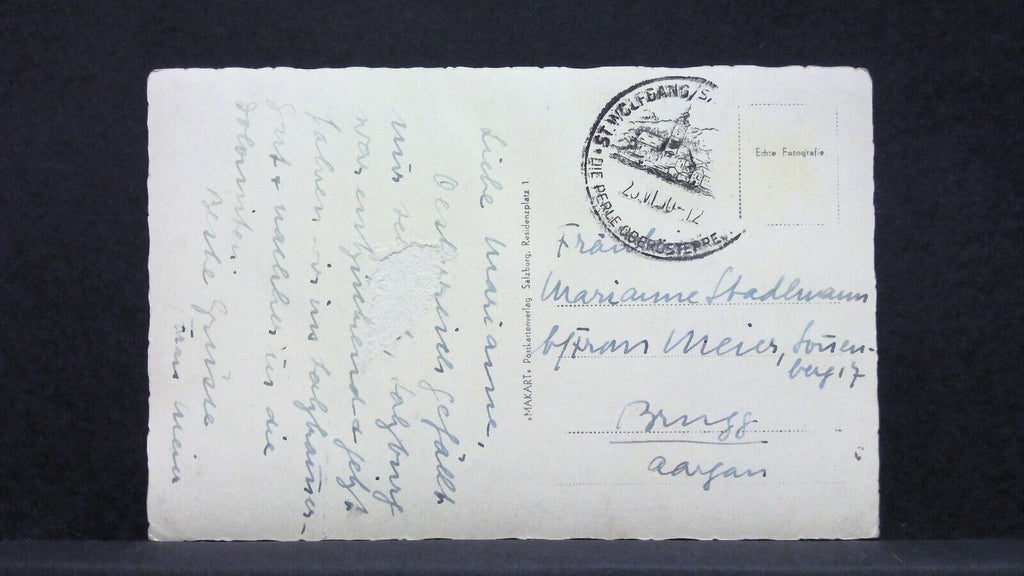 Liebe Marianne,
Oesterreich gefällt
mir sehr, Salzburg
war entzückend & jetzt
fahren wir ins Salzkammer-
gut & nachher in die
Dolomiten.
Beste Grüsse
Frau Meier
"MAKART" Postkartenverlag Salzburg, Residenzplatz 1
ST. WOLFGANG/S.
DIE PERLE OBERÖSTERRE
VI.50-12
Echte Fotografie
Fräulein
Marianne Stadlmann
b/Frau Meier, Sonnen-
berg 17
Brugg
Aargau